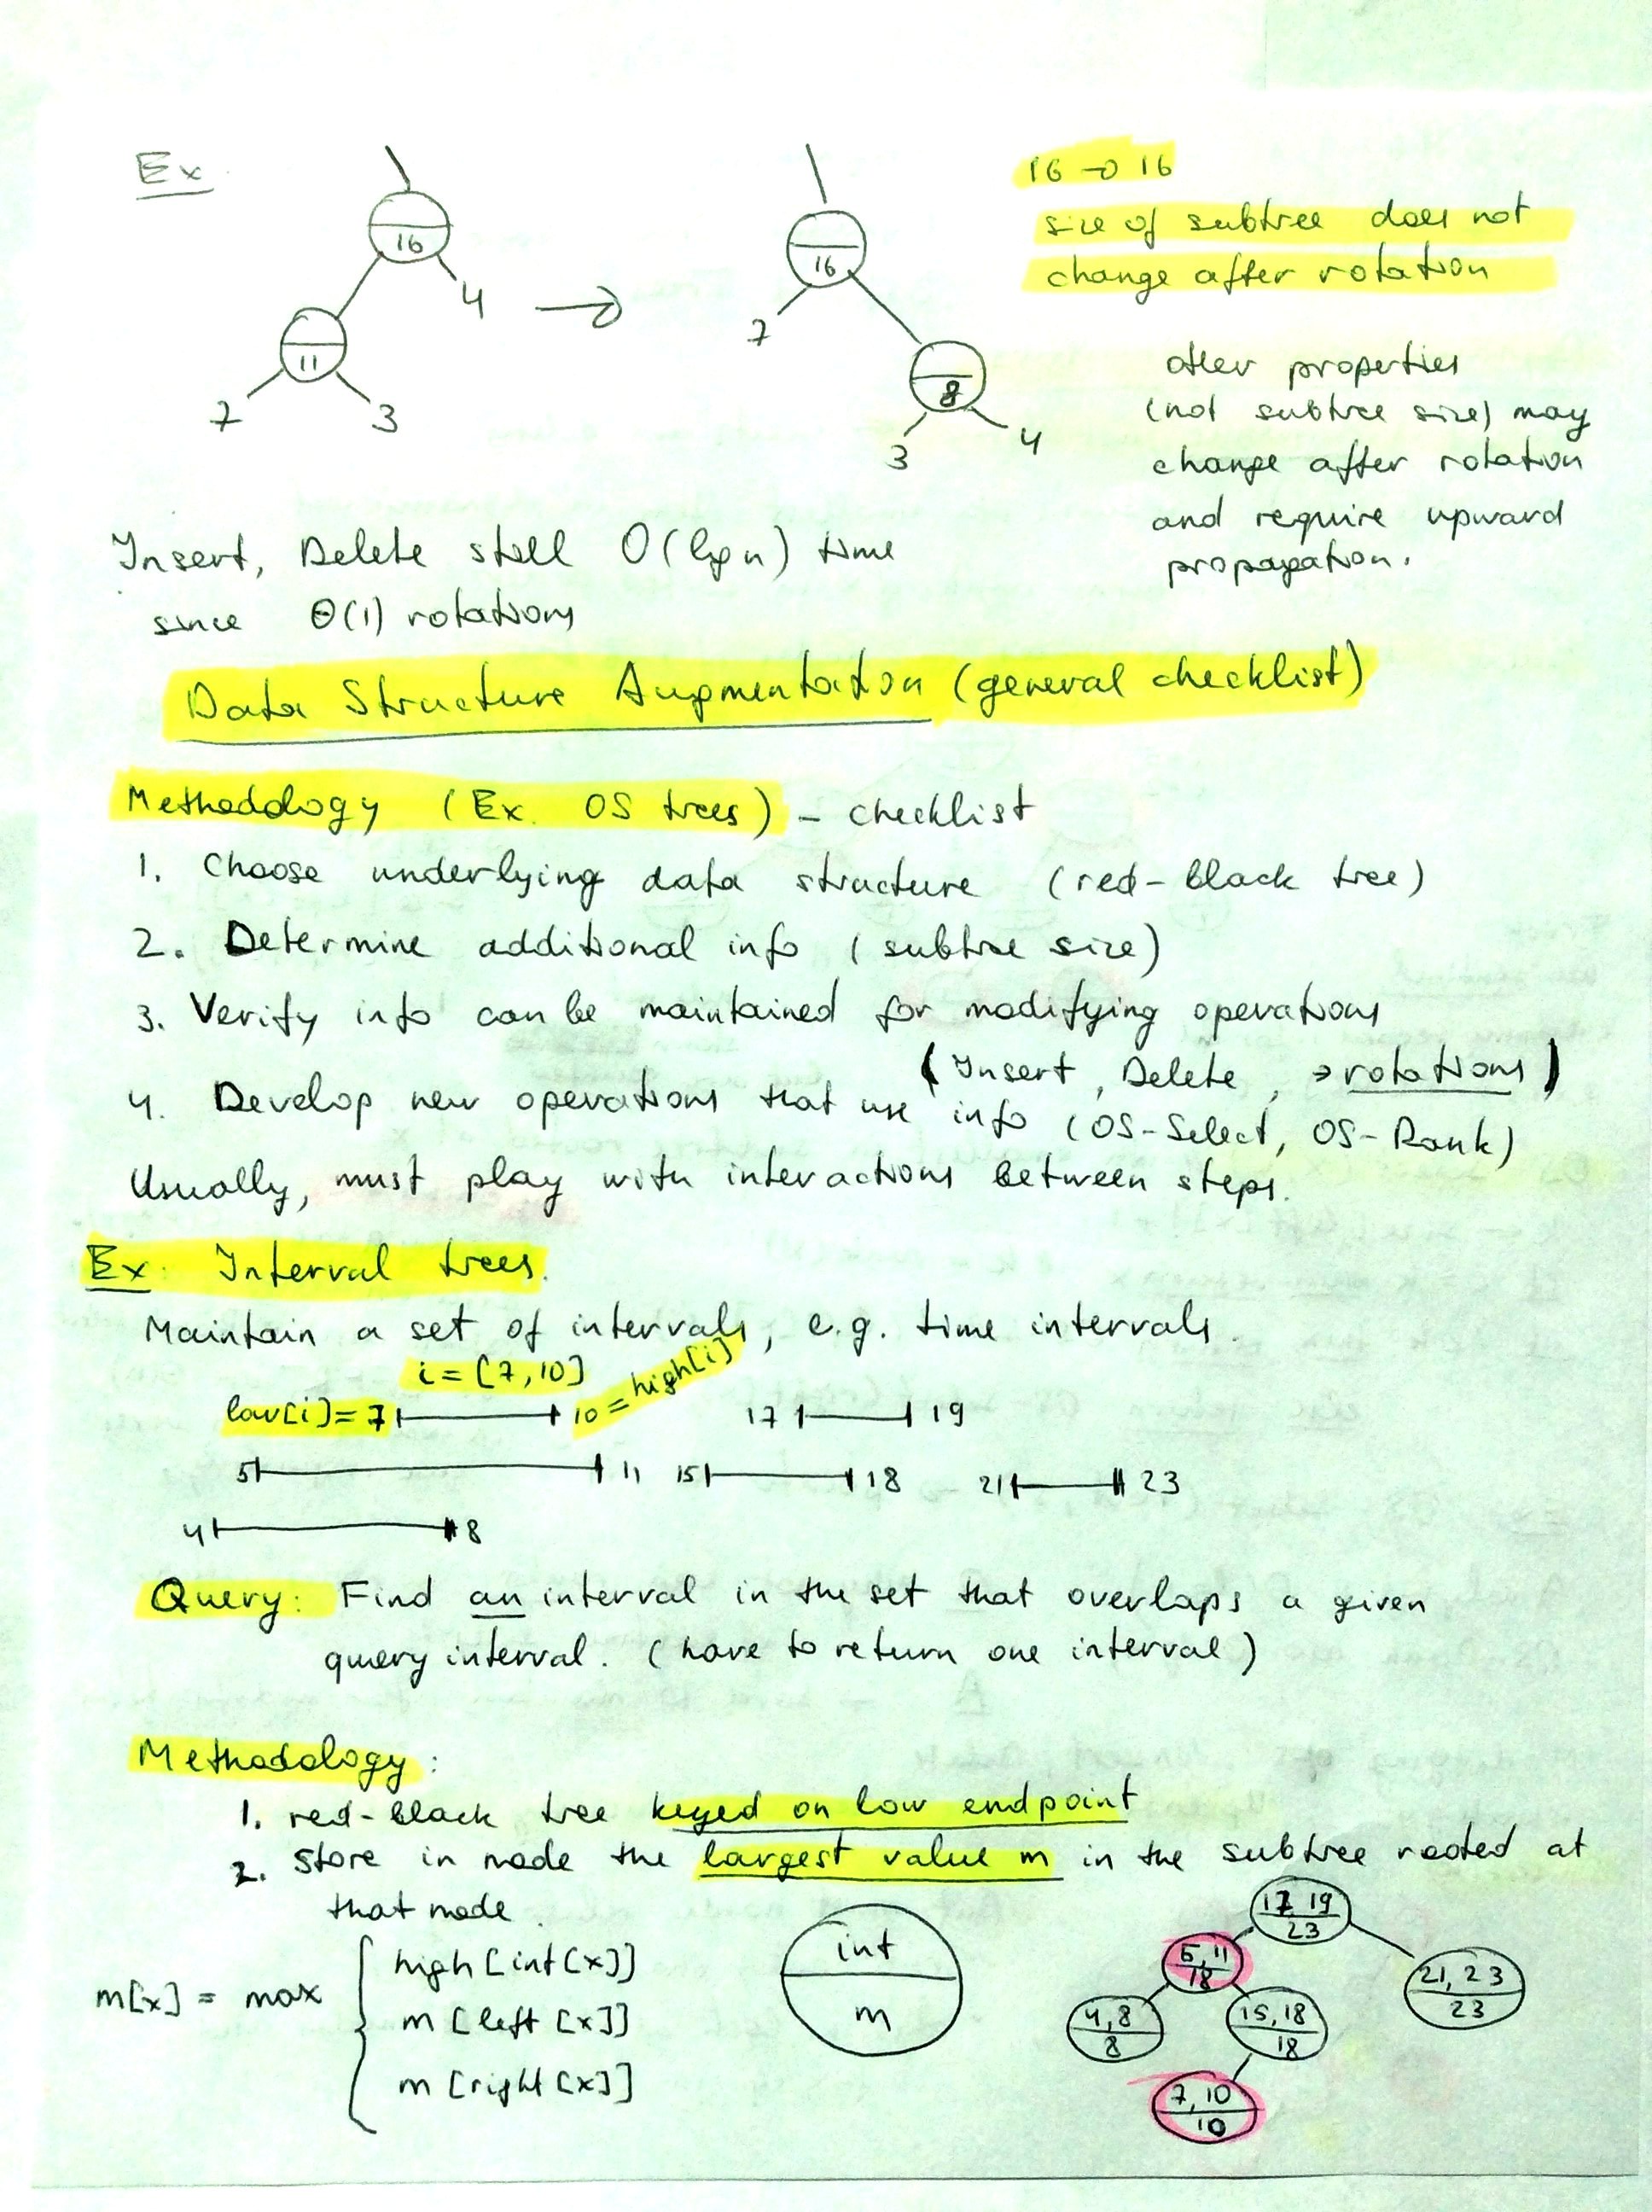 Ex
16
4
11
7 3
16
7
8
3 4
16 → 16
size of subtree does not
change after rotation
other properties
(not subtree size) may
change after rotation
and require upward
propagation.
Insert, Delete still O(lg n) time
since Θ(1) rotations
Data Structure Augmentation (general checklist)
Methodology (Ex. OS trees) - checklist
1. Choose underlying data structure (red-black tree)
2. Determine additional info (subtree size)
3. Verify info can be maintained for modifying operations
(Insert, Delete, → rotations)
4. Develop new operations that use info (OS-Select, OS-Rank)
Usually, must play with interactions between steps.
Ex: Interval trees.
Maintain a set of intervals, e.g. time intervals.
i = [7,10]
low[i] = 7 10 = high[i] 17 19
5 11 15 18 21 23
4 8
Query: Find an interval in the set that overlaps a given
query interval. (have to return one interval)
Methodology:
1. red-black tree keyed on low endpoint
2. store in node the largest value m in the subtree rooted at
that node.
m[x] = max
high[int[x]]
m[left[x]]
m[right[x]]
int
m
17, 19
23
5, 11
18
21, 23
23
4,8
8
15,18
18
7, 10
10